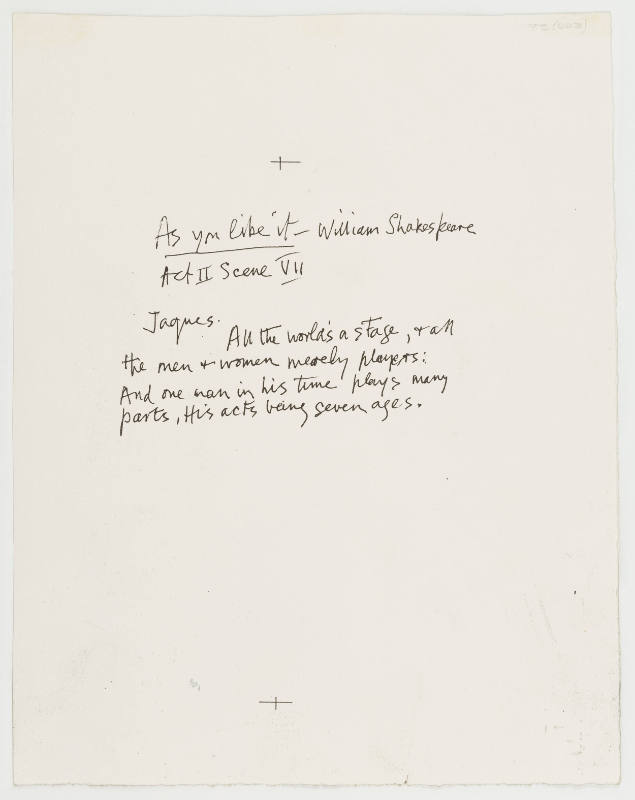 As you like it – William Shakespeare
Act II Scene VII
Jaques.
All the world's a stage, & all
the men & women merely players:
And one man in his time plays many
parts, His acts being seven ages.